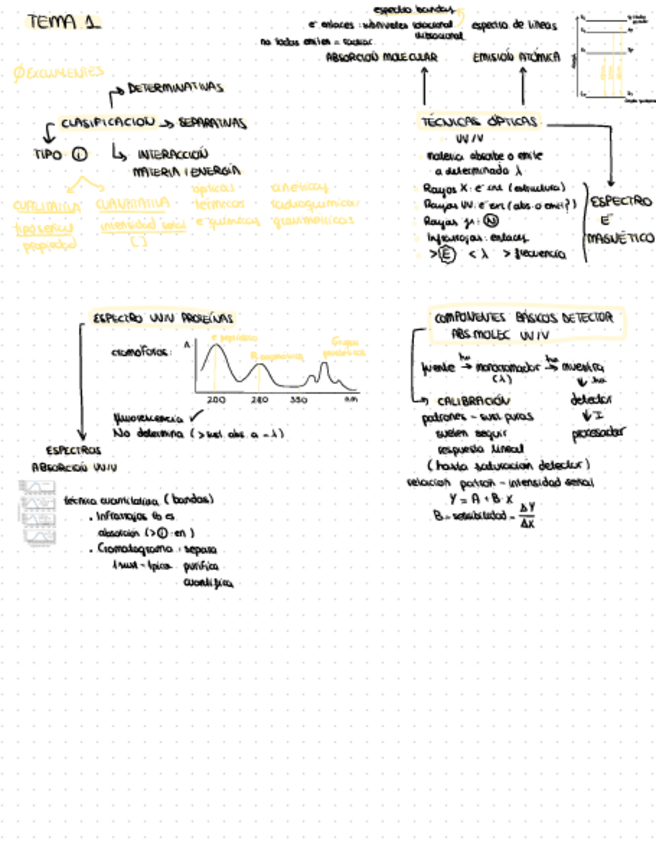 TEMA 1
espectro bandas
e⁻ enlaces: subniveles rotacional
vibracional
espectro de líneas
ABSORCIÓN MOLECULAR
EMISIÓN ATÓMICA
DETERMINATIVAS
CLASIFICACION → SEPARATIVAS
TIPO ⓘ
INTERACCIÓN
MATERIA / ENERGÍA
CUALITATIVA
CUANTITATIVA
intensidad señal
propiedad
[ ]
ópticas
cinéticas
térmicas
radioquímicas
gravimétricas
TÉCNICAS ÓPTICAS
UV/V
materia absorbe o emite
a determinada λ
Rayos X: e⁻ int (estructura)
Rayos UV: e⁻ ext (abs. o emit?)
Rayos γ: Ⓝ
Infrarrojos: enlaces
>Ⓔ < λ > frecuencia
ESPECTRO
E⁻
MAGNÉTICO
ESPECTRO UV/V PROTEÍNAS
cromóforos:
A
e⁻ peptídico
Grupos
prostéticos
200 280 350 nm
fluorescencia ✓
No determina (>sust. abs. a = λ)
ESPECTROS
ABSORCIÓN UV/V
técnica cuantitativa (bandas)
. Infrarrojos tb es
absorción (>ⓘ en )
. Cromatograma: separa
1 sust - 1 pico purifica
cuantifica
COMPONENTES BÁSICOS DETECTOR
ABS. MOLEC UV/V
fuente → hν monocromador → hν muestra
(λ)
↓ hν
detector
↓ I
procesador
CALIBRACIÓN
patrones - sust puras
suelen seguir
respuesta lineal
(hasta saturación detector)
relacion patrón - intensidad señal
Y = A + B · X
B = sensibilidad = ΔY/ΔX